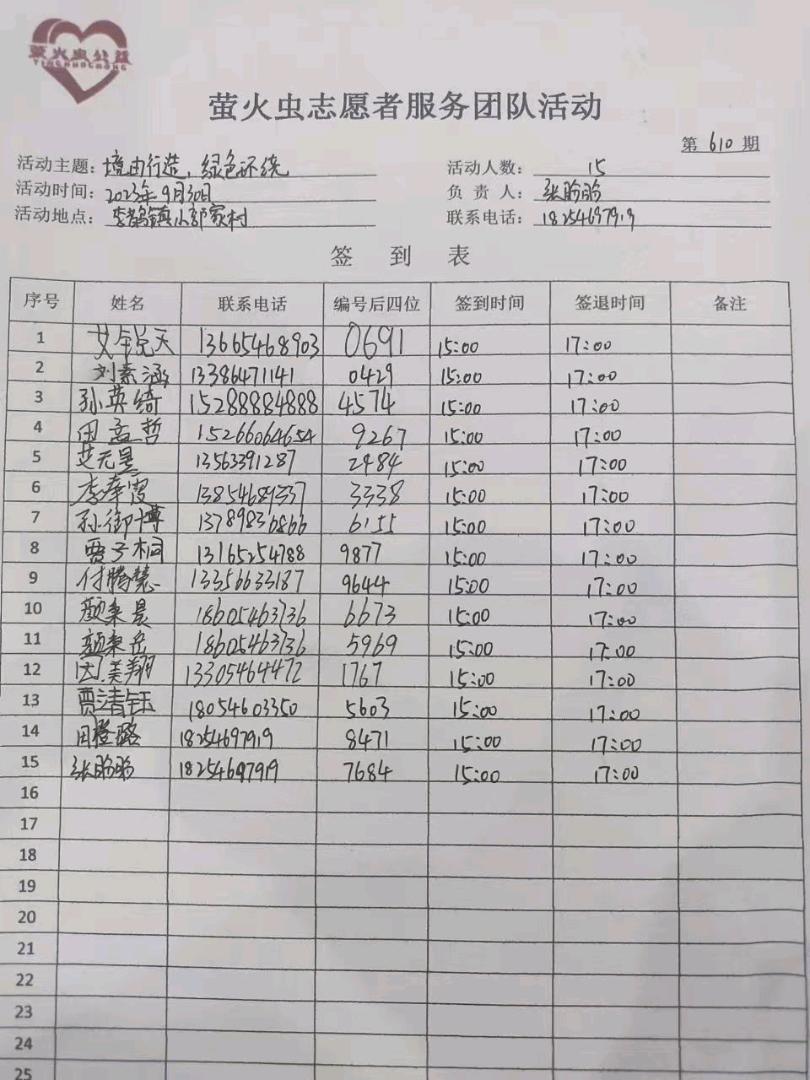 萤火虫公益
YINGHUOCHONG
萤火虫志愿者服务团队活动
第 610 期
活动主题：境由行造，绿色环绕 活动人数： 15
活动时间：2023年9月30日 负 责 人：张盼盼
活动地点：李鹊镇小郭家村 联系电话：18254697919
签 到 表
序号 姓名 联系电话 编号后四位 签到时间 签退时间 备注
1 13665468903 0691 15:00 17:00
2 刘素涵 13386471141 0429 15:00 17:00
3 孙英绮 15288884888 4574 15:00 17:00
4 田孟哲 15266064654 9267 15:00 17:00
5 艾元昊 13563391287 2484 15:00 17:00
6 13854689337 3338 15:00 17:00
7 孙御博 13789836866 6155 15:00 17:00
8 贾子桐 13165254788 9877 15:00 17:00
9 付腾慧 13356633187 9644 15:00 17:00
10 18605463736 6673 15:00 17:00
11 18605463736 5969 15:00 17:00
12 13305464472 1767 15:00 17:00
13 贾清钰 18054603350 5603 15:00 17:00
14 田橙璐 18254697919 8471 15:00 17:00
15 张盼盼 18254697919 7684 15:00 17:00
16
17
18
19
20
21
22
23
24
25